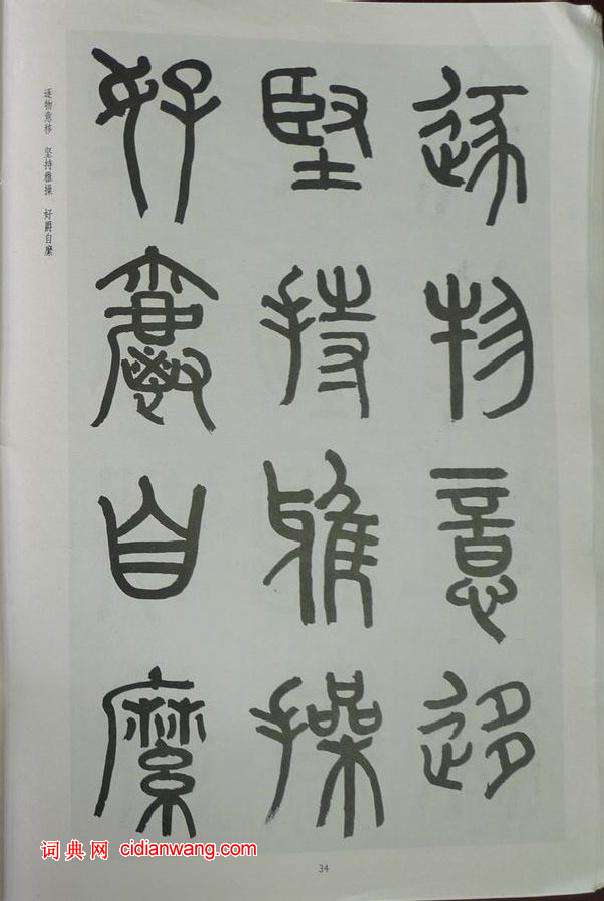 逐物意移
坚持雅操
好爵自縻
逐物意移 坚持雅操 好爵自縻
词典网 cidianwang.com
34